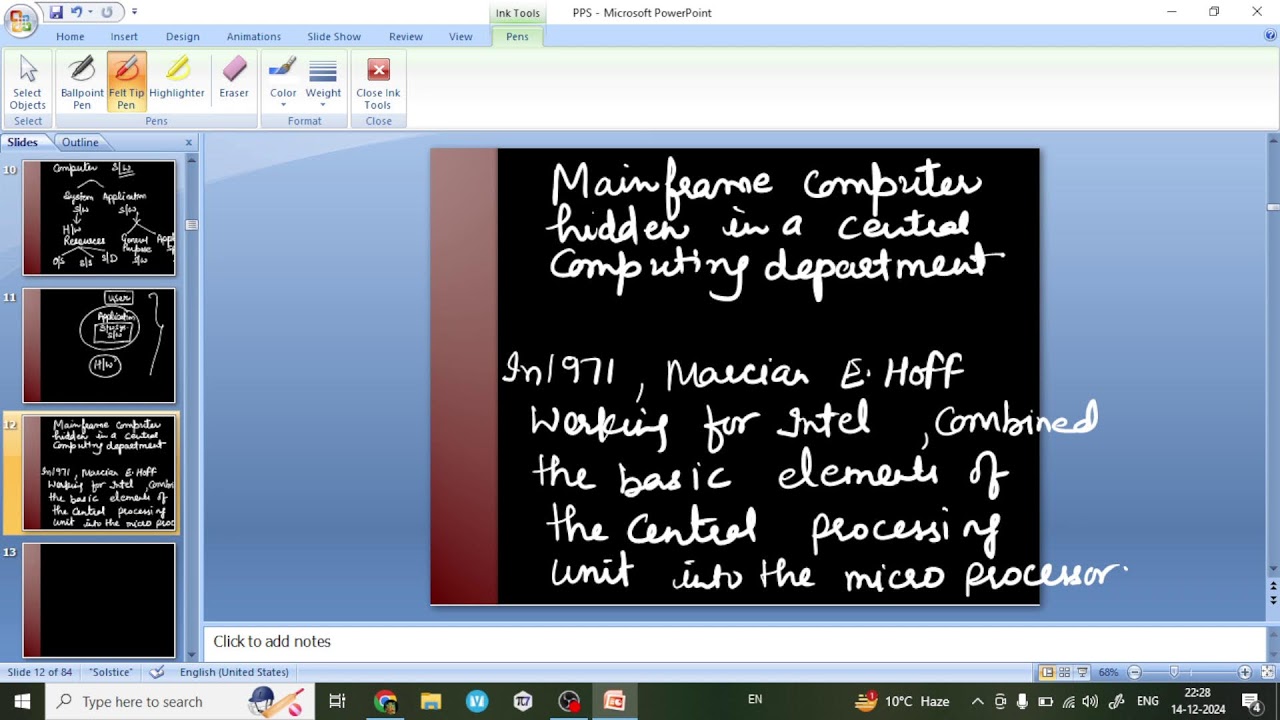 Ink Tools
PPS - Microsoft PowerPoint
Home Insert Design Animations Slide Show Review View Pens
Select Objects
Ballpoint Pen
Felt Tip Pen
Highlighter
Eraser
Color
Weight
Close Ink Tools
Select
Pens
Format
Close
Slides Outline x
10
Computer S/W
System Application
S/W S/W
H/W
Resources General Purpose S/W
O/S S/S S/D
11
user
Application
S/W
H/W
12
Mainframe computer
hidden in a central
Computing department
In 1971, Marcian E. Hoff
Working for Intel, Comb
the basic elements of
the central processing
unit into the micro proc
13
Mainframe computer
hidden in a central
Computing department
In 1971, Marcian E. Hoff
Working for Intel, Combined
the basic elements of
the Central processing
unit into the micro processor.
Click to add notes
Slide 12 of 84 "Solstice" English (United States) 68%
Type here to search
EN
1
10°C Haze
ENG
22:28
14-12-2024
4